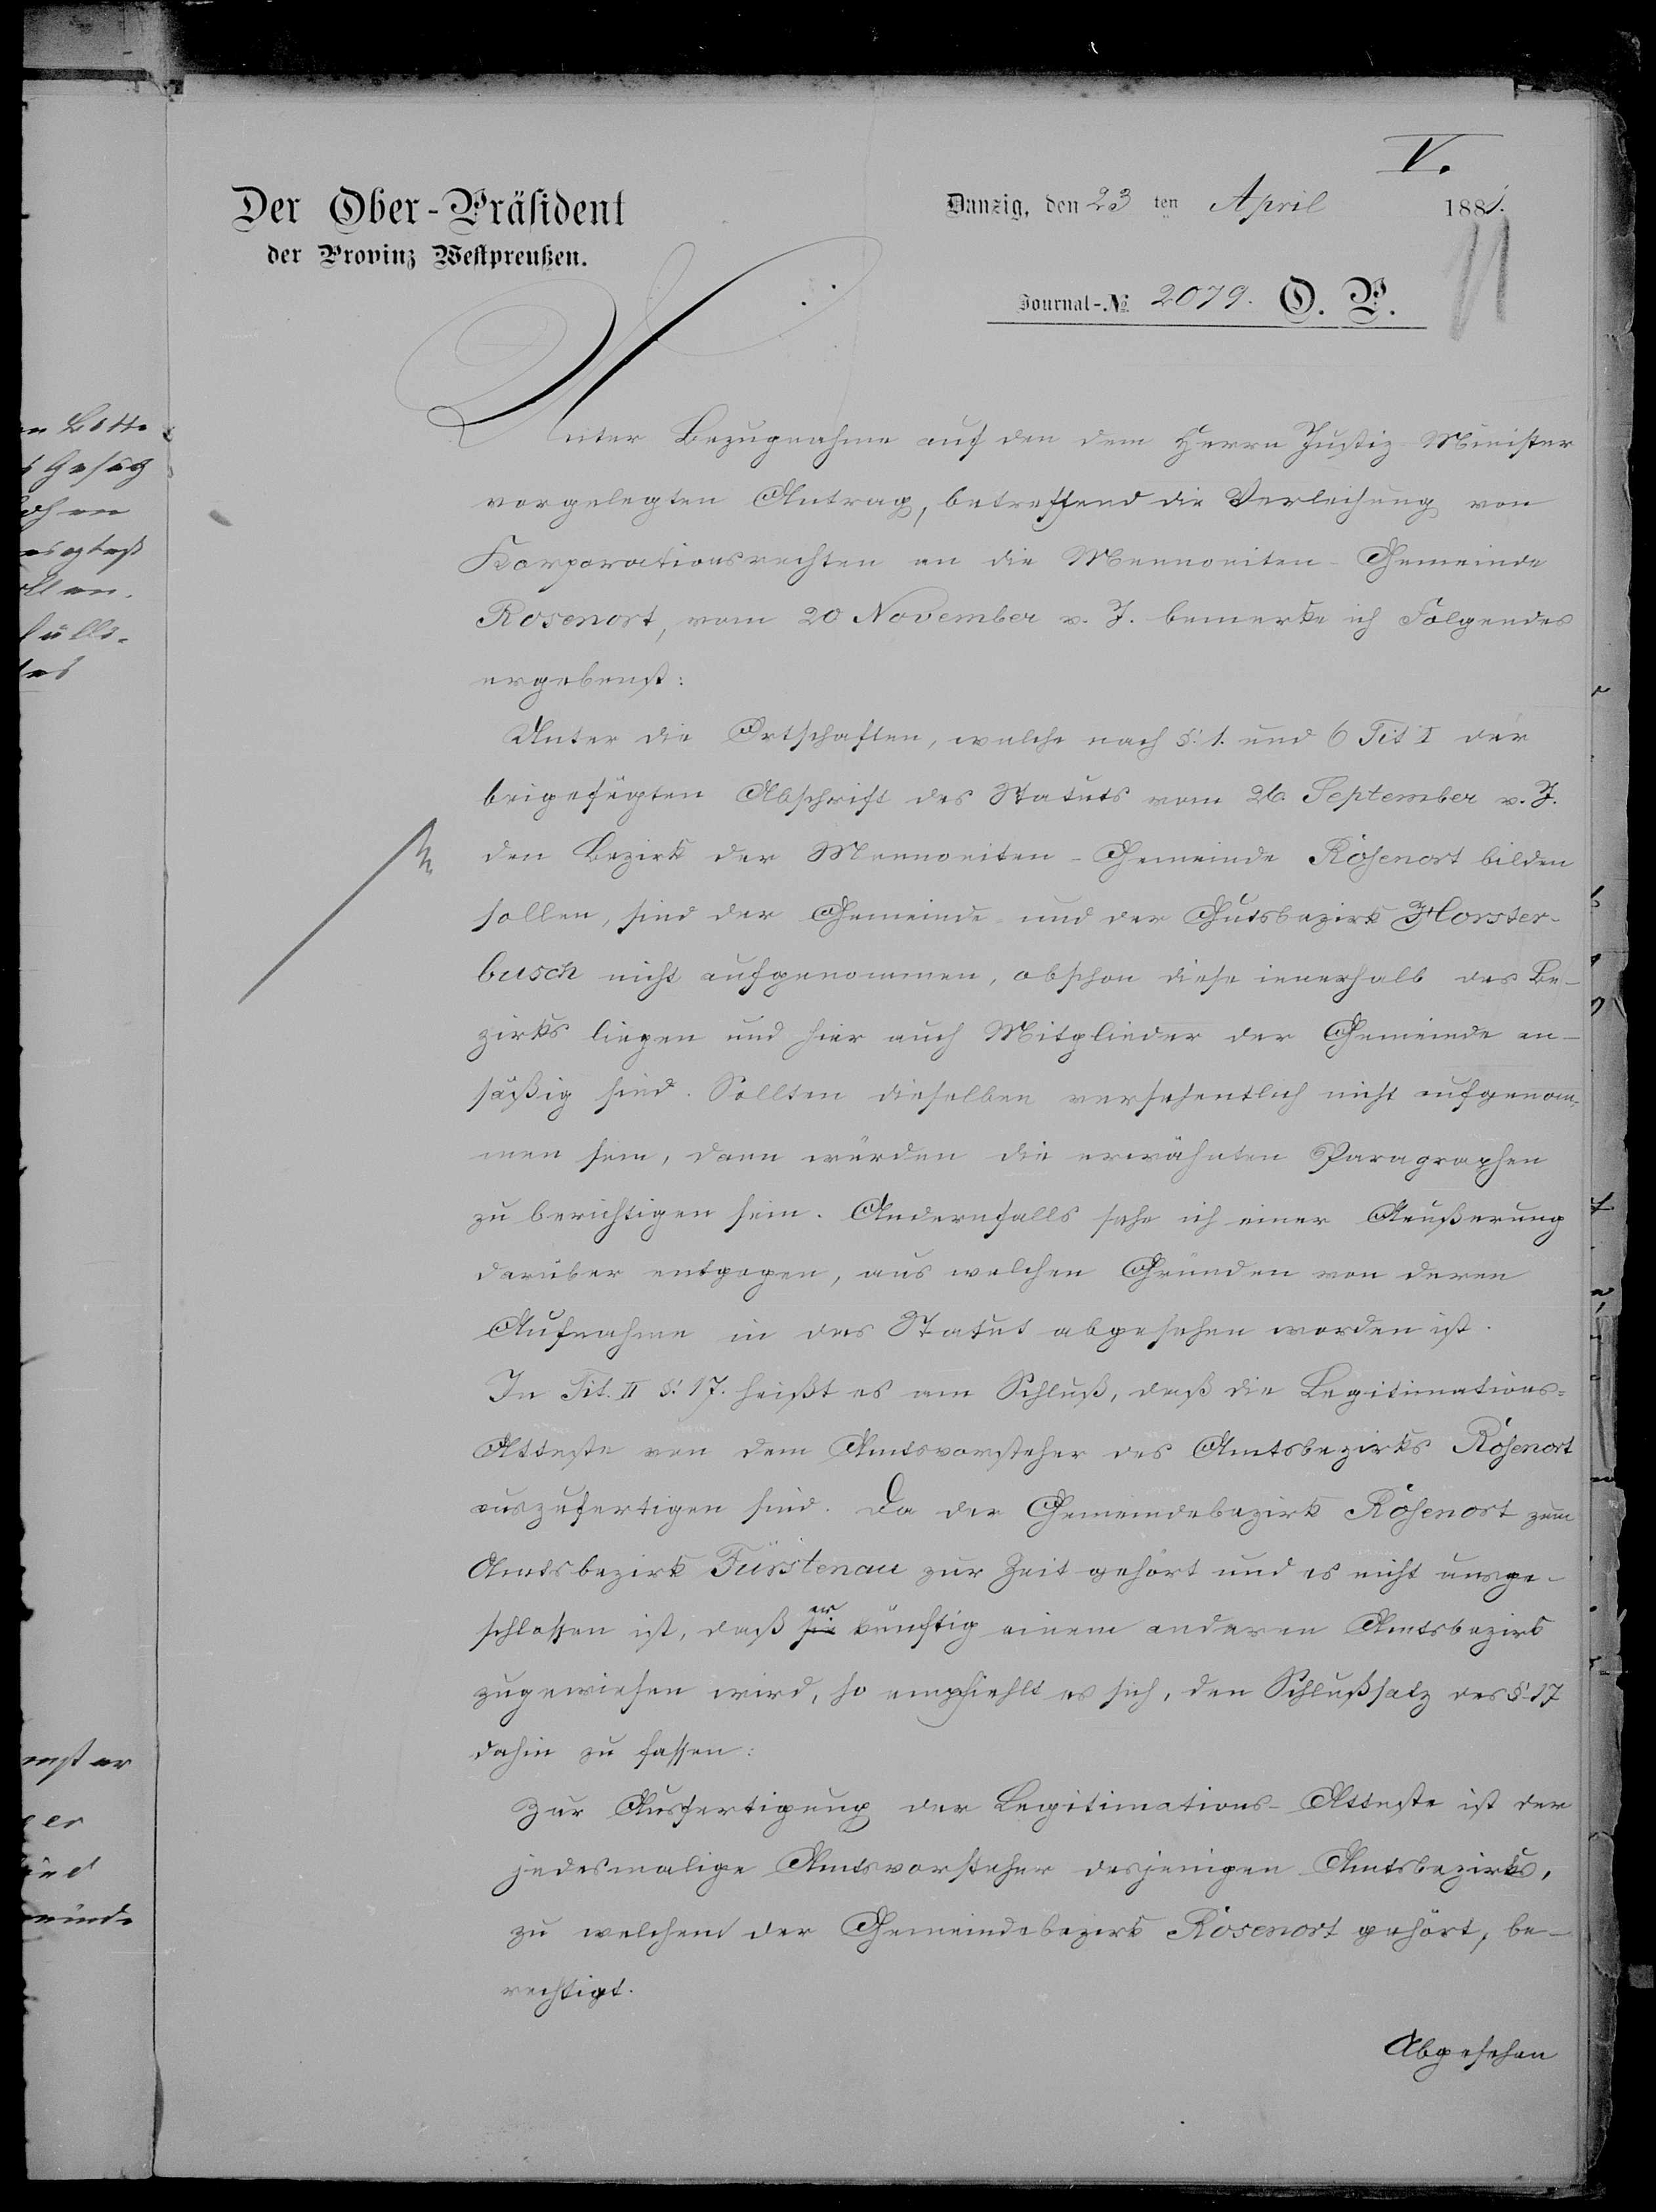 V.
Der Ober-Präsident
der Provinz Westpreußen.
Danzig, den 23 ten April 1881.
11
Journal-№ 2079. O. P.
Unter Bezugnahme auf den dem Herrn Justiz Minister
vorgelegten Antrag, betreffend die Verleihung von
Korporationsrechten an die Mennoniten-Gemeinde
Rosenort, vom 20 November v. J. bemerke ich Folgendes
ergebenst:
Unter die Ortschaften, welche nach §. 1. und 6 Tit I der
beigefügten Abschrift des Statuts vom 26. September v. J.
den Bezirk der Mennoniten-Gemeinde Rosenort bilden
sollen, sind der Gemeinde- und der Gutsbezirk Horster-
busch nicht aufgenommen, obschon diese innerhalb des Be-
zirks liegen und hier auch Mitglieder der Gemeinde an-
säßig sind. Sollten dieselben versehentlich nicht aufgenom-
men sein, dann würden die erwähnten Paragraphen
zu berichtigen sein. Andernfalls sehe ich einer Aeußerung
darüber entgegen, aus welchen Gründen von deren
Aufnahme in das Statut abgesehen worden ist.
In Tit. II §. 17. heißt es am Schluß, daß die Legitimations-
Atteste von dem Amtsvorsteher des Amtsbezirks Rosenort
auszufertigen sind. Da der Gemeindebezirk Rosenort zum
Amtsbezirk Fürstenau zur Zeit gehört und es nicht ausge-
schlossen ist, daß sie er künftig einem anderen Amtsbezirk
zugewiesen wird, so empfiehlt es sich, den Schlußsatz des § 17
dahin zu fassen:
Zur Ausfertigung der Legitimations-Atteste ist der
jedesmalige Amtsvorsteher desjenigen Amtsbezirks,
zu welchem der Gemeindebezirk Rosenort gehört, be-
rechtigt.
Abgesehen